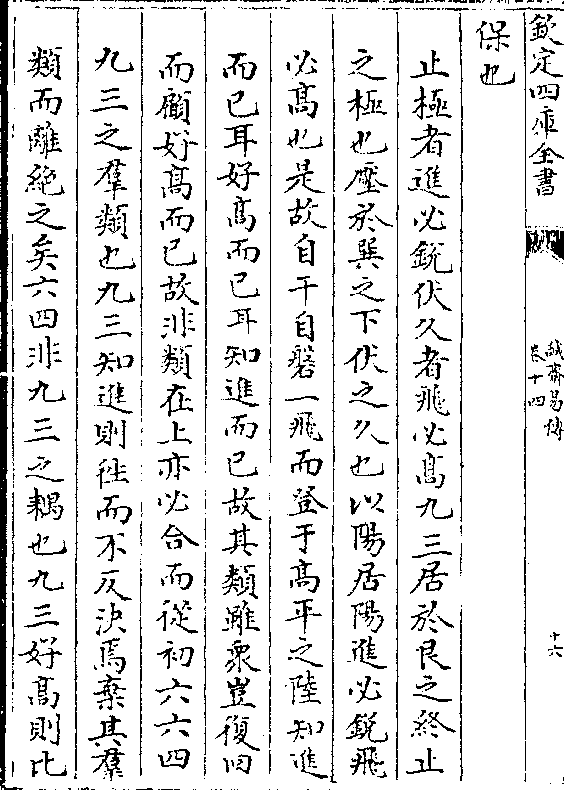 欽定四庫全書
誠齋易傳
卷十四
十六
保也
止極者進必銳伏久者飛必高九三居於艮之終止
之極也壓於巽之下伏之久也以陽居陽進必銳飛
必高也是故自干自磐一飛而登于高平之陸知進
而已耳好高而已耳知進而已故其類雖衆豈復回
而顧好高而已故非類在上亦必合而從初六六四
九三之羣類也九三知進則徃而不反決焉棄其羣
類而離絶之矣六四非九三之耦也九三好高則比